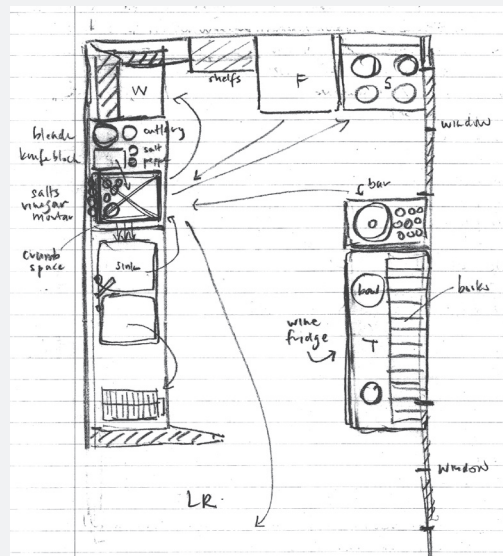 shelfs
F
S
W
window
blende
cutlery
knife block
salt
pepper
bar
salts
vinegar
mortar
crumb
space
sink
bowl
books
wine
fridge
T
window
LR